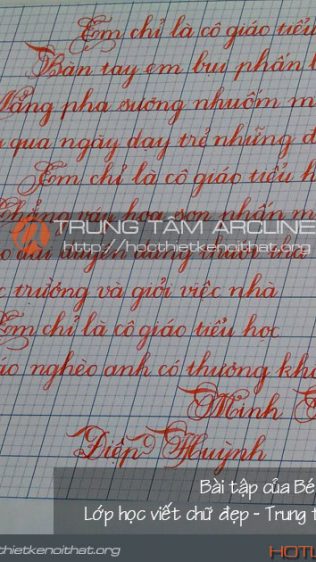 Em chỉ là cô giáo tiểu
Bàn tay em bụi phấn
Nắng pha sương nhuốm m
qua ngày dạy trẻ những đ
Em chỉ là cô giáo tiểu h
Chẳng váy hoa son phấn m
TRUNG TÂM ARCLINE
http://hocthietkenoithat.org
o dài duyên dáng thướt tha
c trường và giỏi việc nhà
Em chỉ là cô giáo tiểu học
áo nghèo anh có thương kh
Minh
Diệp Huỳnh
Bài tập của Bé
Lớp học viết chữ đẹp - Trung t
thietkenoithat.org
HOTL